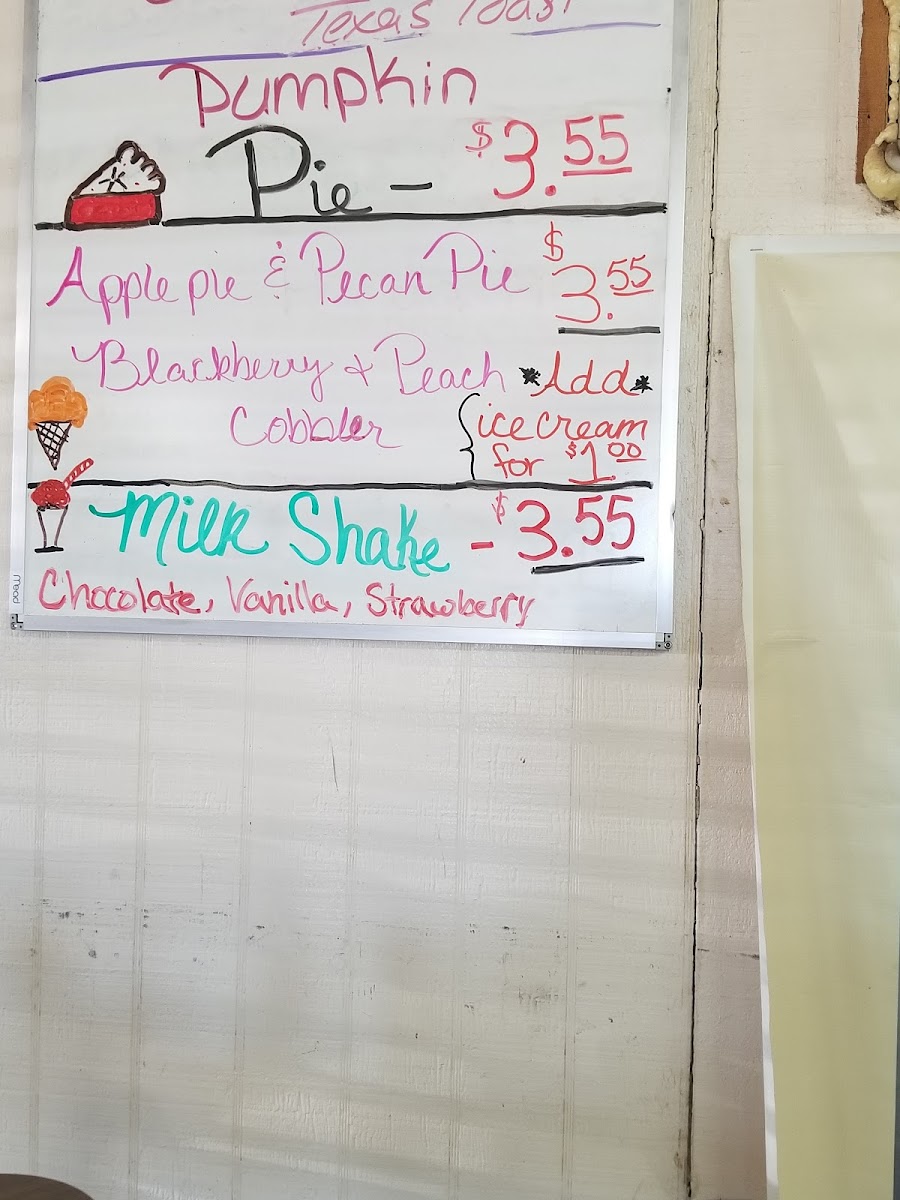 Texas Toast
Pumpkin
Pie - $3.55
Apple pie & Pecan Pie $3.55
Blackberry & Peach *Add*
Cobbler {ice cream
for $1.00
Milk Shake - $3.55
Chocolate, Vanilla, Strawberry
Mead